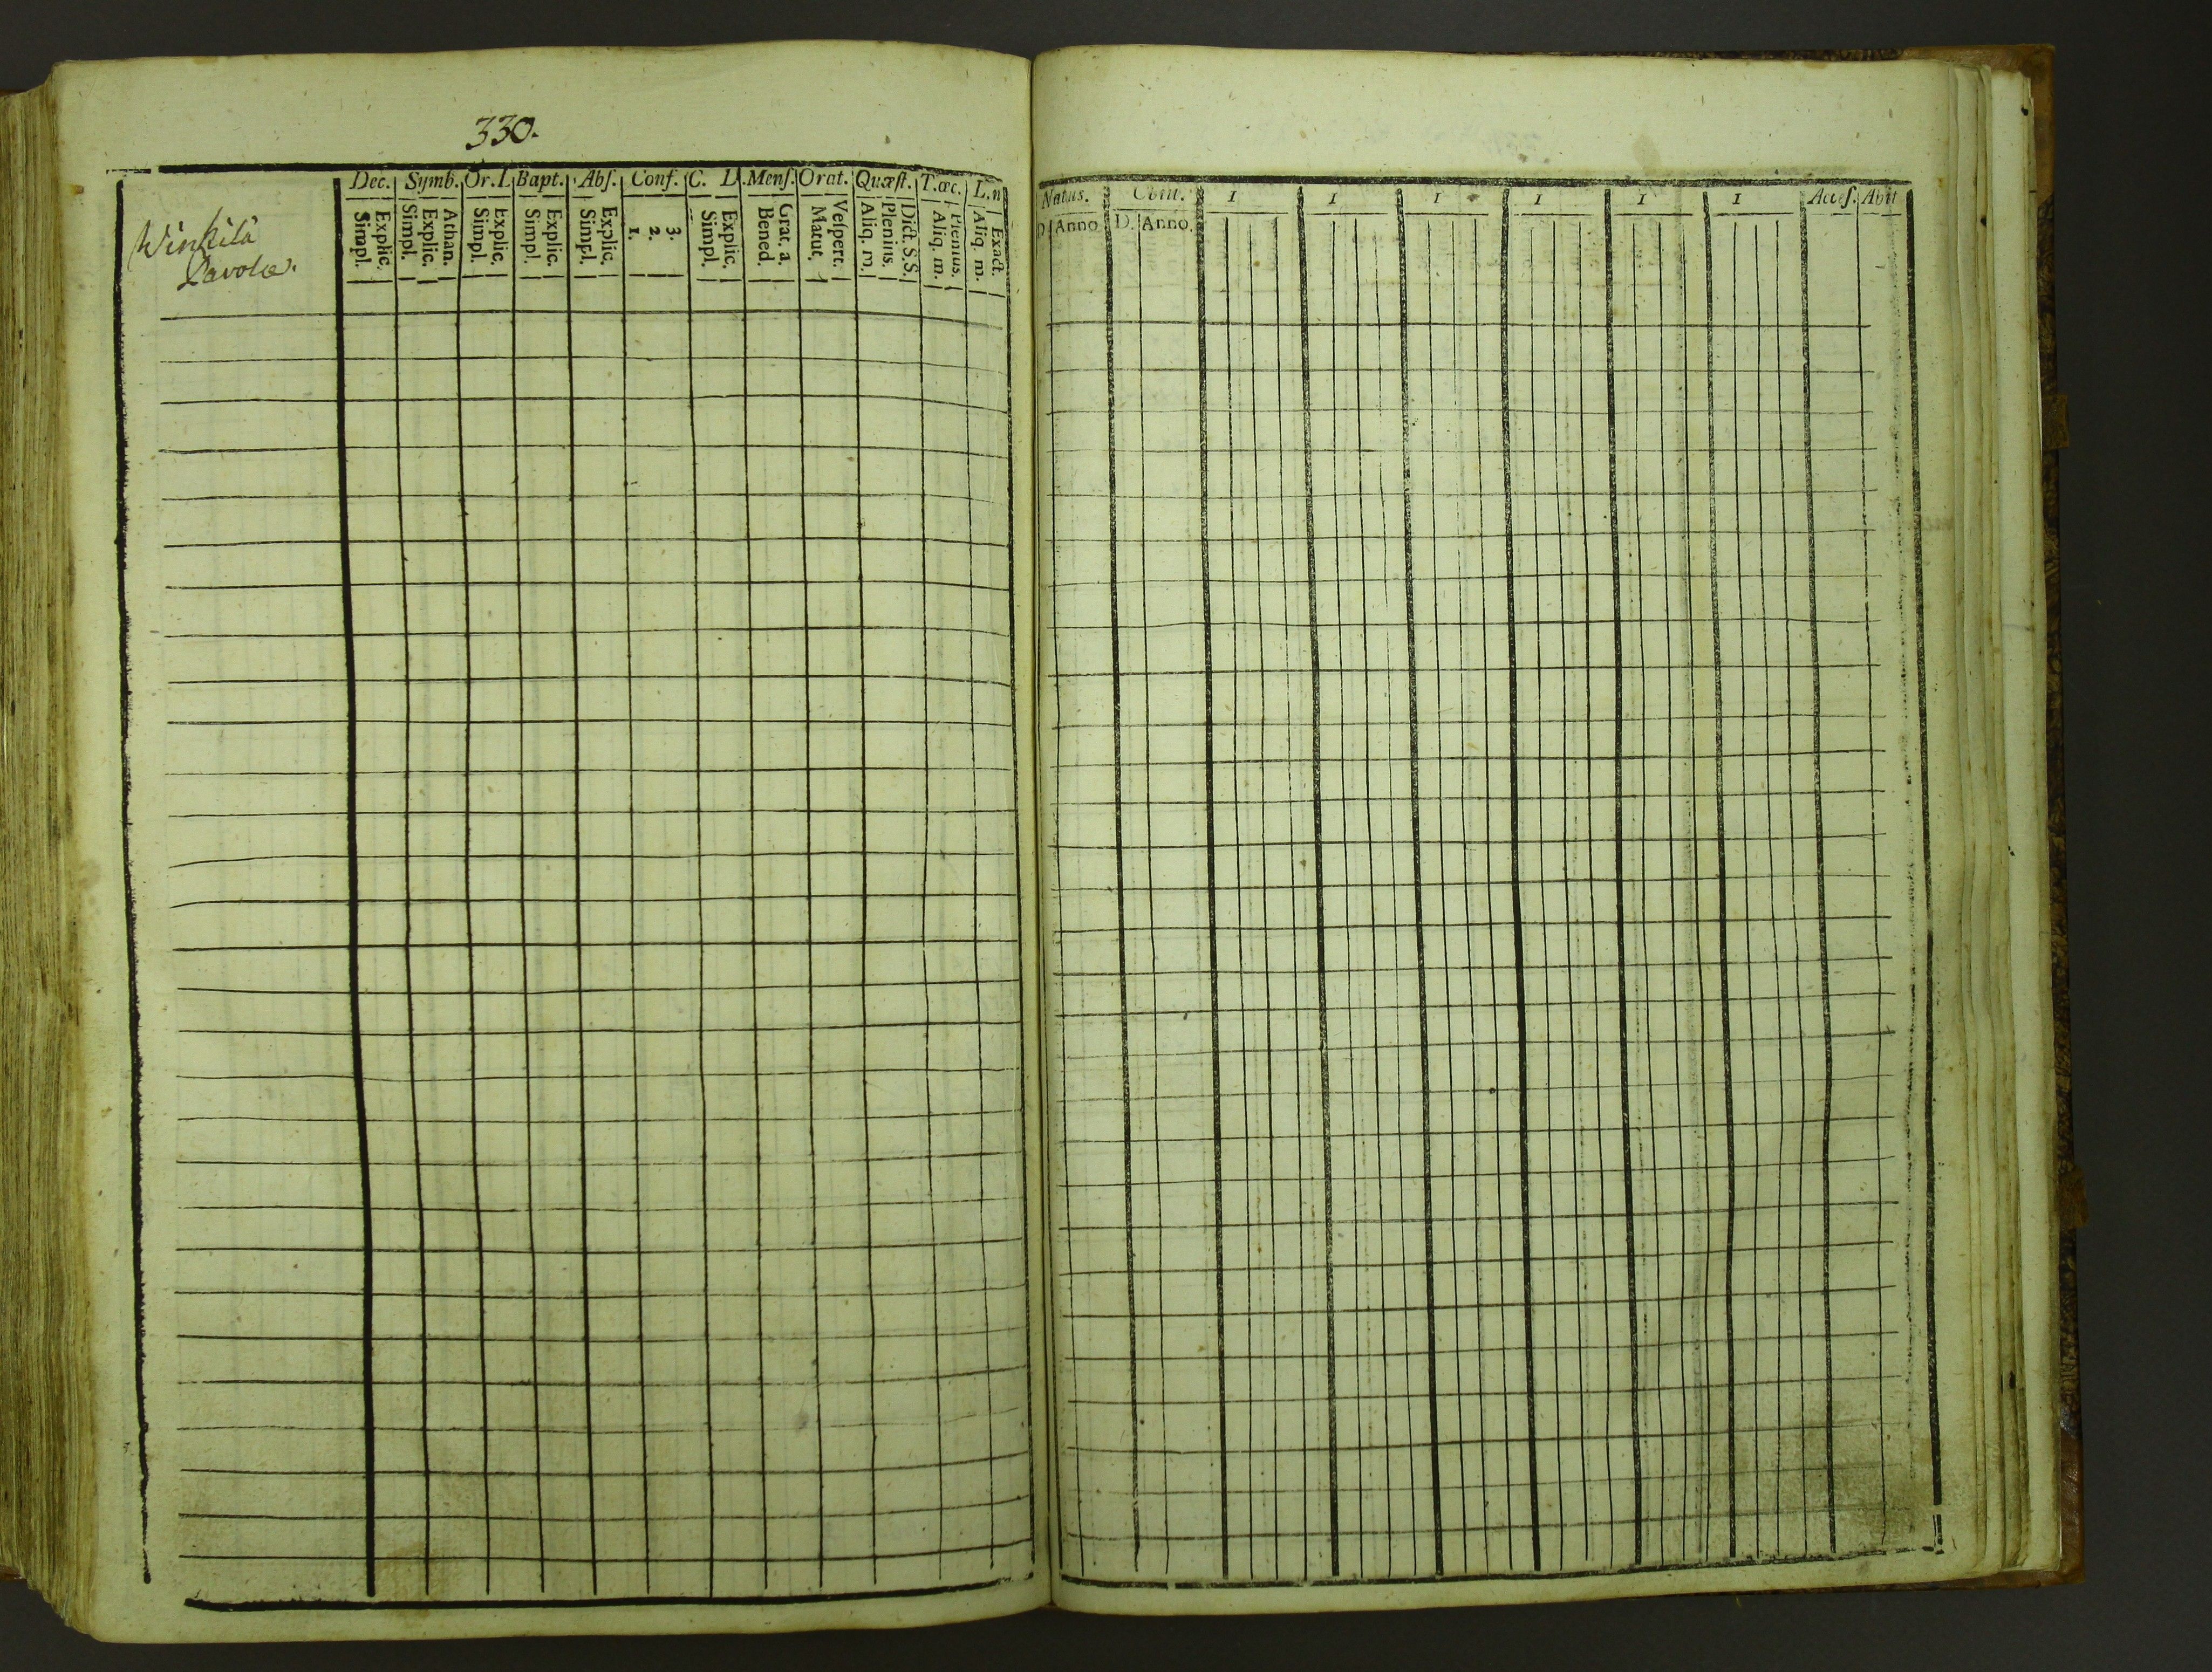 330.
Dec. Symb. Or. L. Bapt. Abs. Conf. C. D. Mens. Orat. Quæst. T. æc. L. n
Winkilä
Lavola.
Explic. Simpl.
Athan. Explic. Simpl.
Explic. Simpl.
Explic. Simpl.
Explic. Simpl.
3. 2. 1.
Explic. Simpl.
Grat. a. Bened.
Vespert. Matut.
Dict. S.S. Plenius. Aliq. m.
Plenius. Aliq. m.
Exact. Aliq. m.
Natus. Com. I I I I I I Access. Abiit
D. Anno D. Anno.